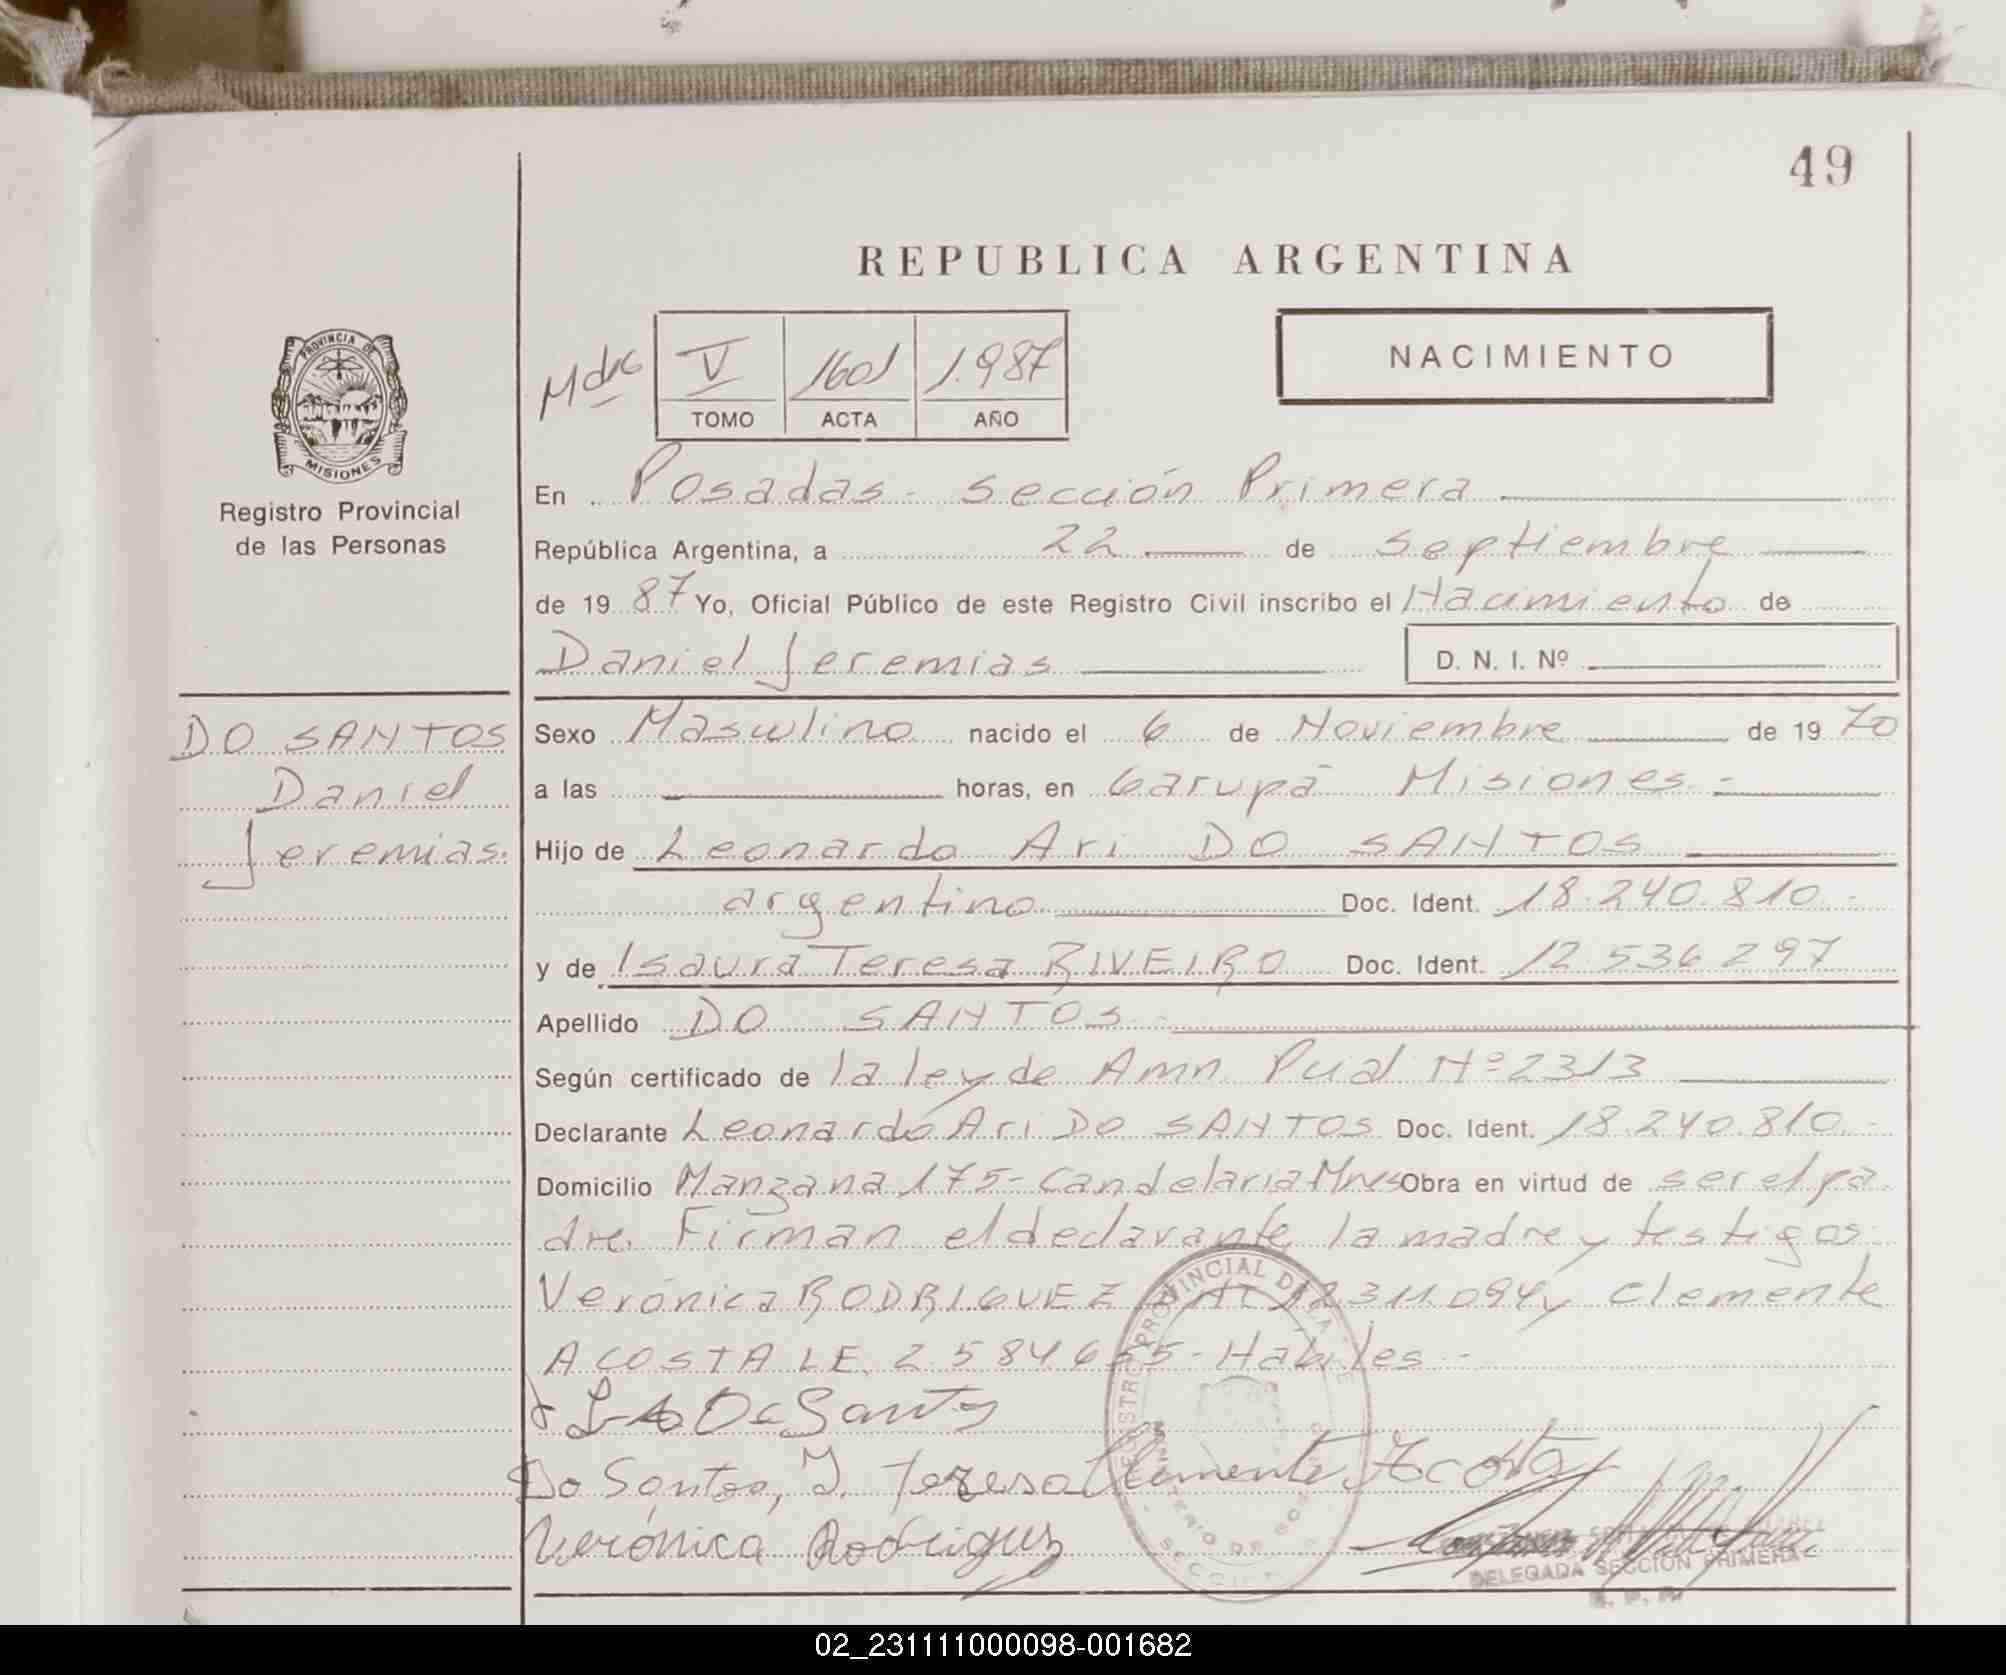 49
REPUBLICA ARGENTINA
V 1601 1.987
TOMO ACTA AÑO
NACIMIENTO
PROVINCIA DE
MISIONES
Registro Provincial
de las Personas
En Posadas - sección Primera
República Argentina, a 22 de septiembre
de 19 87 Yo, Oficial Público de este Registro Civil inscribo el Nacimiento de
Daniel Jeremias D. N. I. Nº
DO SANTOS
Daniel
Jeremias.
Sexo Masculino nacido el 6 de Noviembre de 19 70
a las horas, en Garupá Misiones.-
Hijo de Leonardo Ari DO SANTOS
argentino Doc. Ident. 18.240.810.-
y de Isaura Teresa RIVEIRO Doc. Ident. 12.536 297
Apellido DO SANTOS.-
Según certificado de la ley de Amn Pcial Nº 2313
Declarante Leonardo Ari DO SANTOS Doc. Ident. 18.240.810.-
Domicilio Manzana 175- Candelaria Mnes Obra en virtud de ser el pa
dre. Firman el declarante la madre y testigos
Verónica RODRIGUEZ y Clemente
ACOSTA LE. 2.584.655- Habiles.-
Do Santos
Do Santos, I. Teresa Clemente Acosta
Verónica Rodriguez
DELEGADA SECCION PRIMERA
02_231111000098-001682